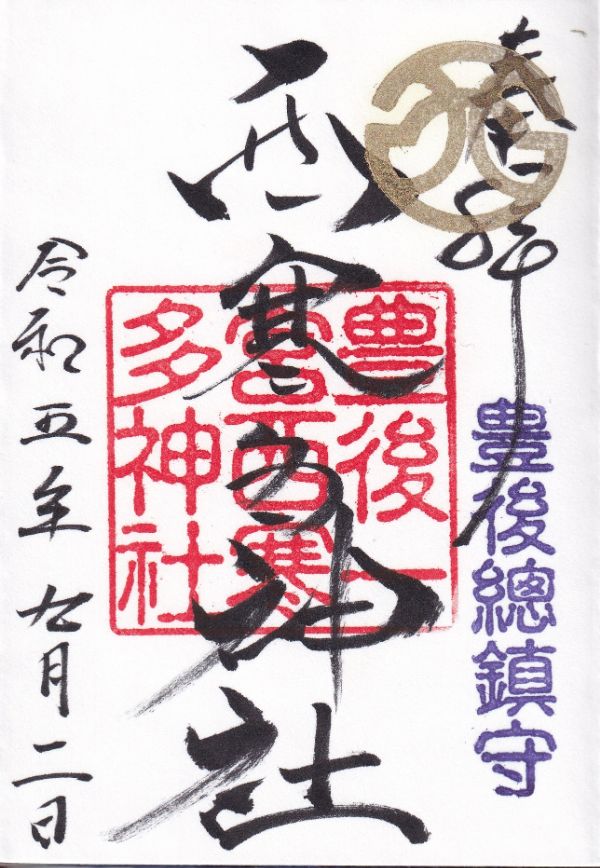 奉拝
豊後總鎮守
西寒多神社
豊後一
宮西寒
多神社
令和五年九月二日